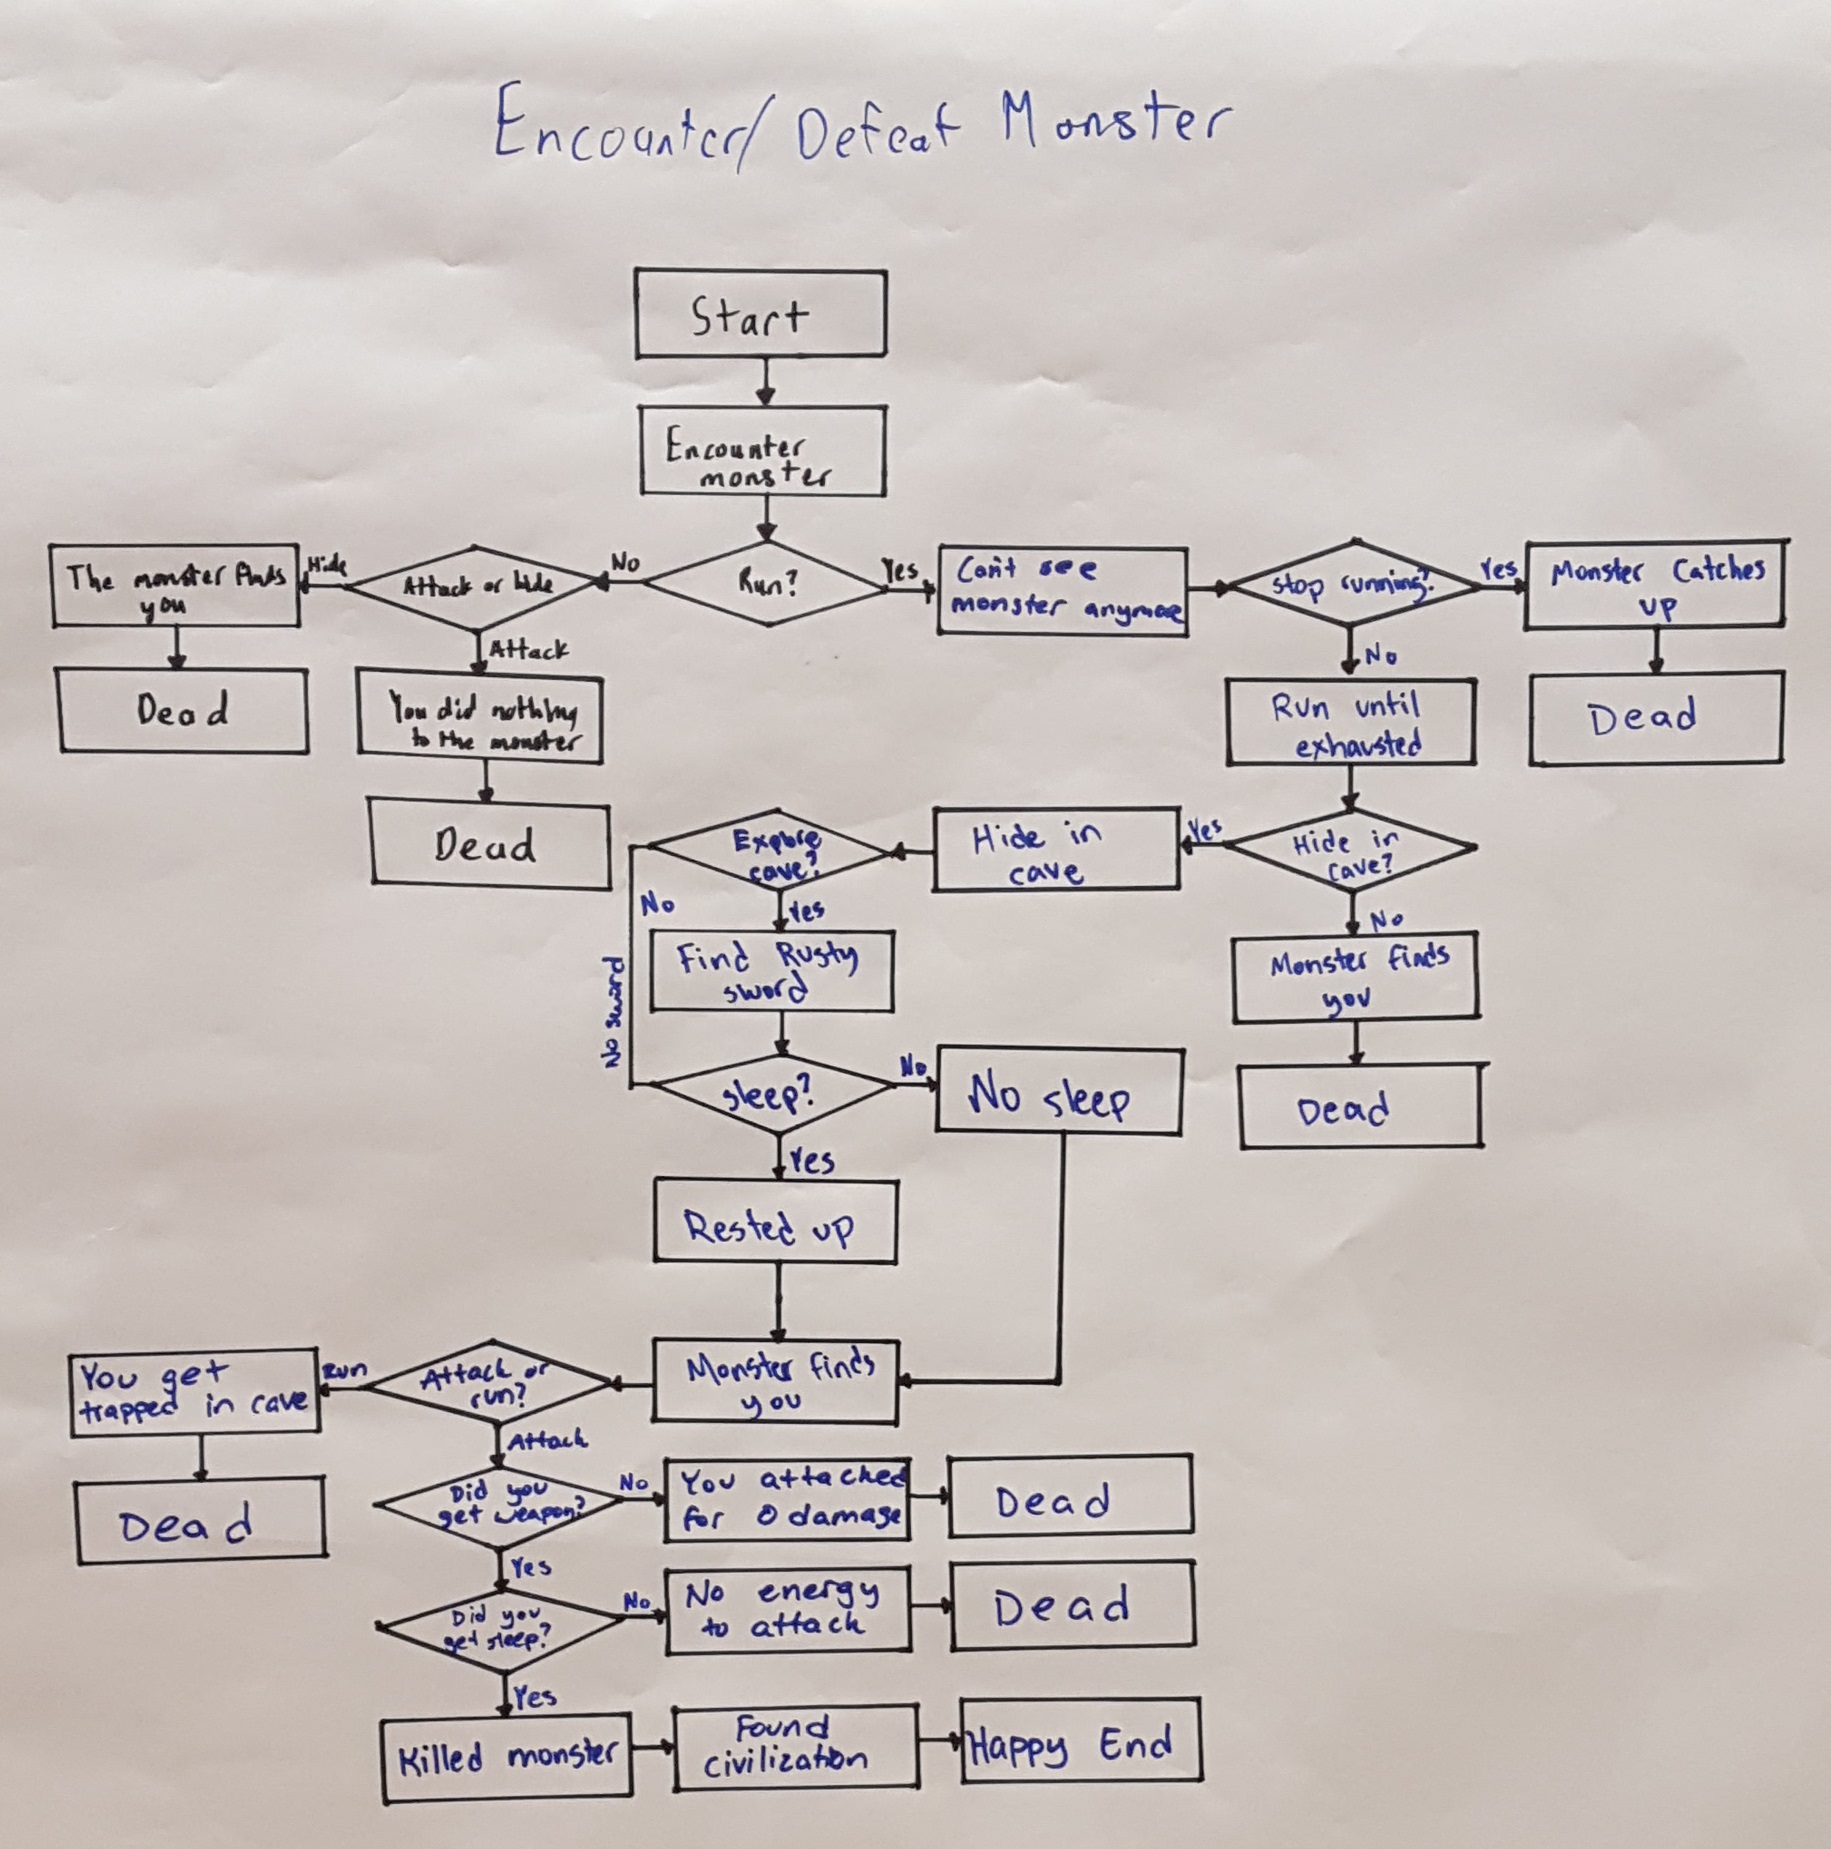 Encounter/ Defeat Monster
Start
Encounter
monster
Run?
No
Yes
Attack or hide
Hide
The monster finds
you
Dead
Attack
You did nothing
to the monster
Dead
Can't see
monster anymore
stop running?
Yes
Monster Catches
up
Dead
No
Run until
exhausted
Hide in
cave?
Yes
Hide in
cave
No
Monster finds
you
Dead
Explore
cave?
No
No sword
Yes
Find Rusty
sword
sleep?
No
No sleep
Yes
Rested up
Monster finds
you
Attack or
run?
Run
You get
trapped in cave
Dead
Attack
Did you
get weapon?
No
You attacked
for 0 damage
Dead
Yes
Did you
get sleep?
No
No energy
to attack
Dead
Yes
Killed monster
Found
civilization
Happy End